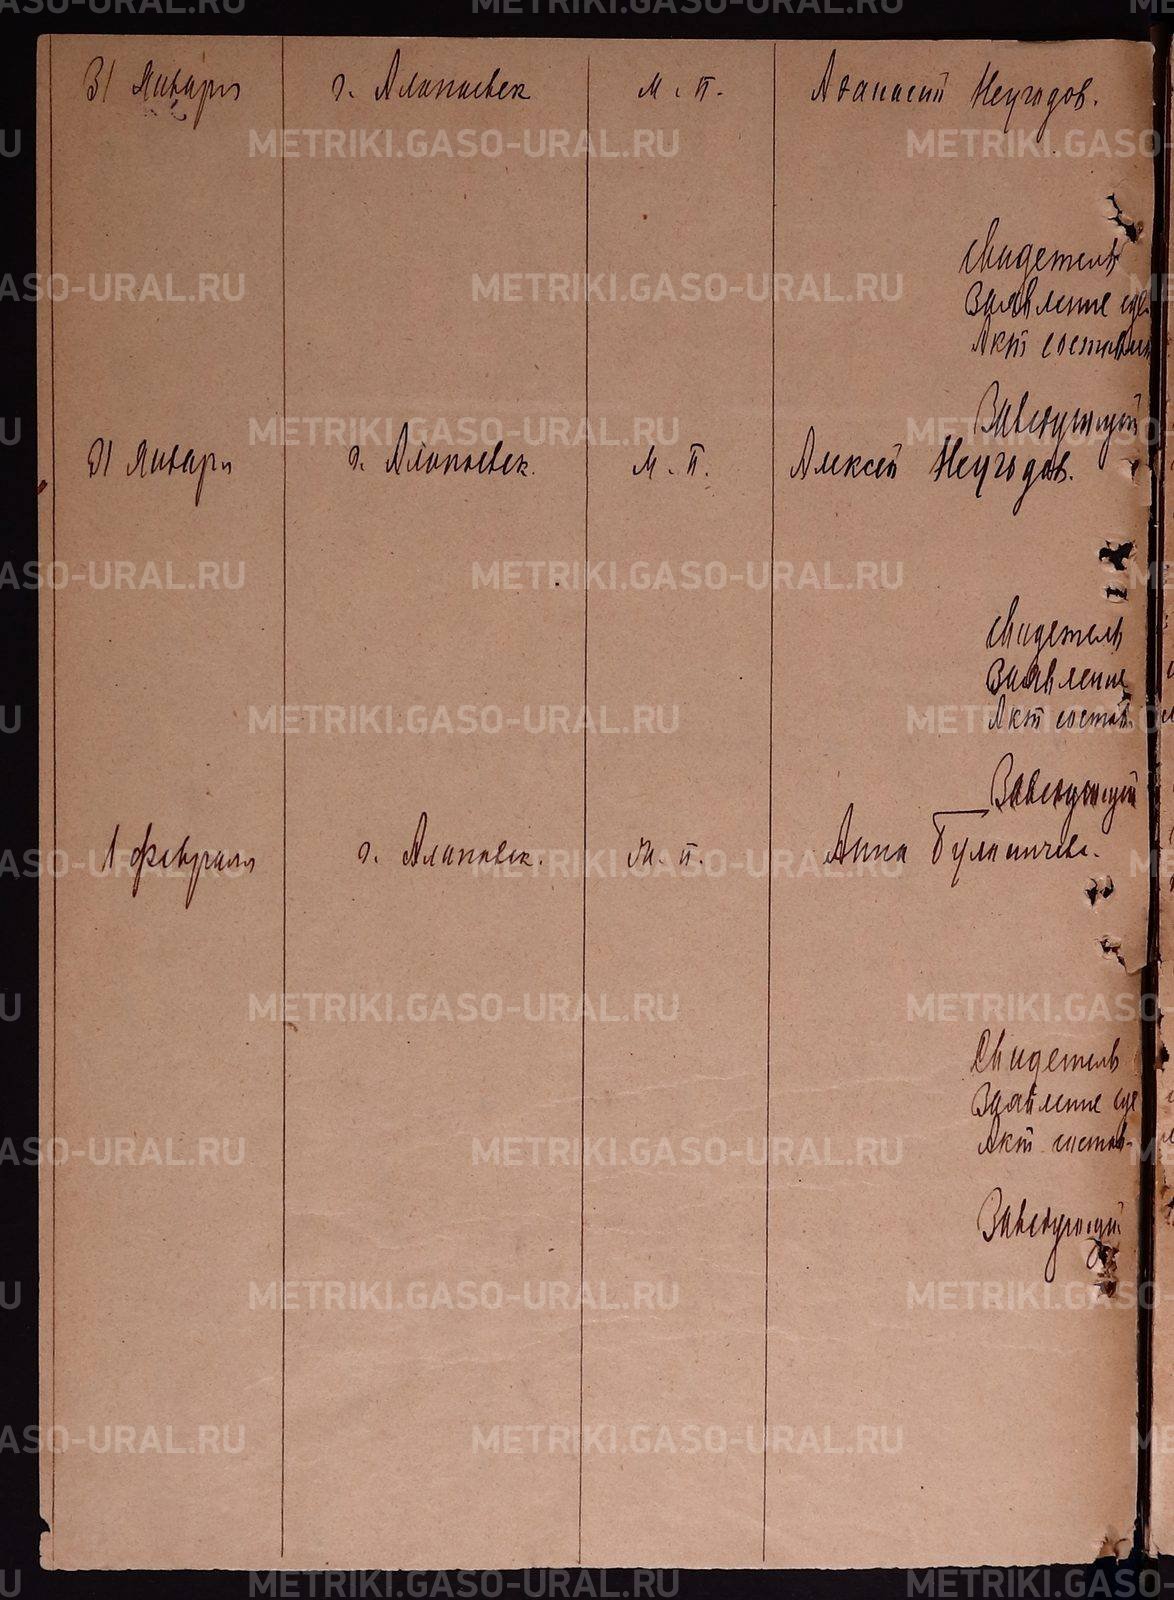 31 Января г. Алапаевск м. п. Афанасий Неугодов.
Свидетель
Заявление сде
Акт составлен
Заведующий
31 Января г. Алапаевск. м. п. Алексей Неугодов.
Свидетель
Заявление
Акт состав.
Заведующий
1 февраля г. Алапаевск. м. п. Анна Буланичева.
Свидетель
Заявление сде
Акт состав-
Заведующий
METRIKI.GASO-URAL.RU